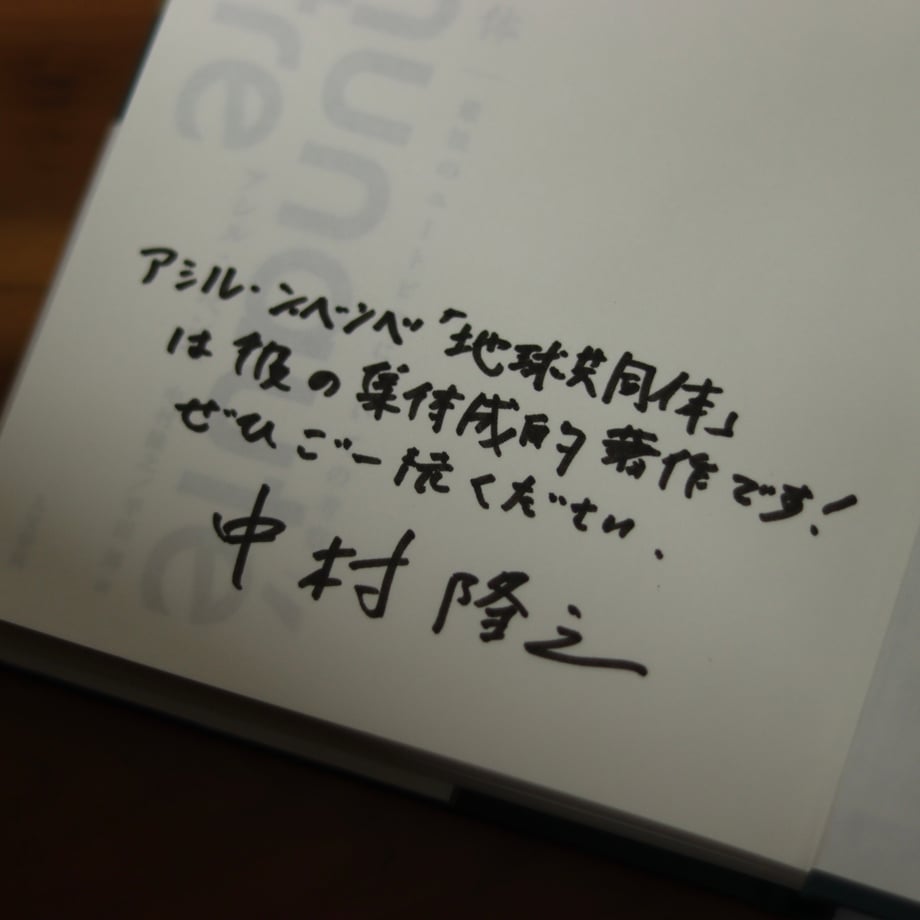 アシル・ンベンベ「地球共同体」
は彼の集体成的著作です!
ぜひご一読ください.
中村隆之